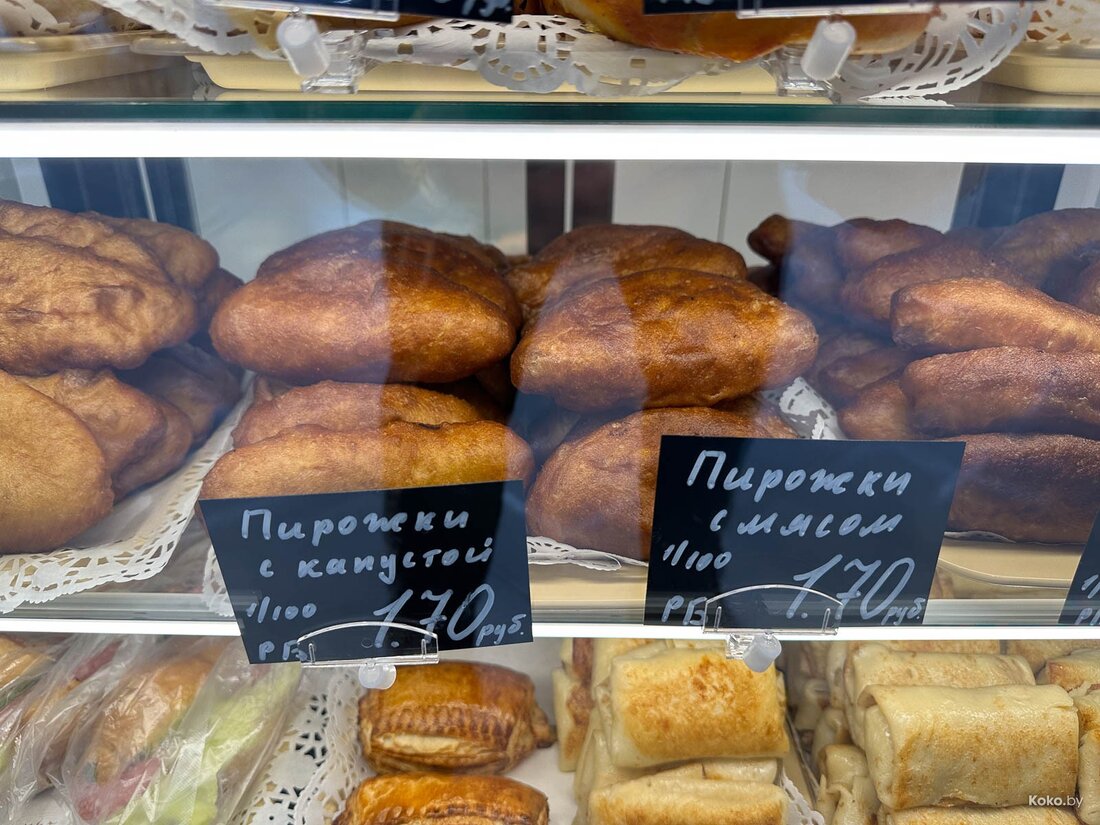 Пирожки
с капустой
1/100
1.70 руб.
РБ
Пирожки
с мясом
1/100
1.70 руб.
РБ
Koko.by